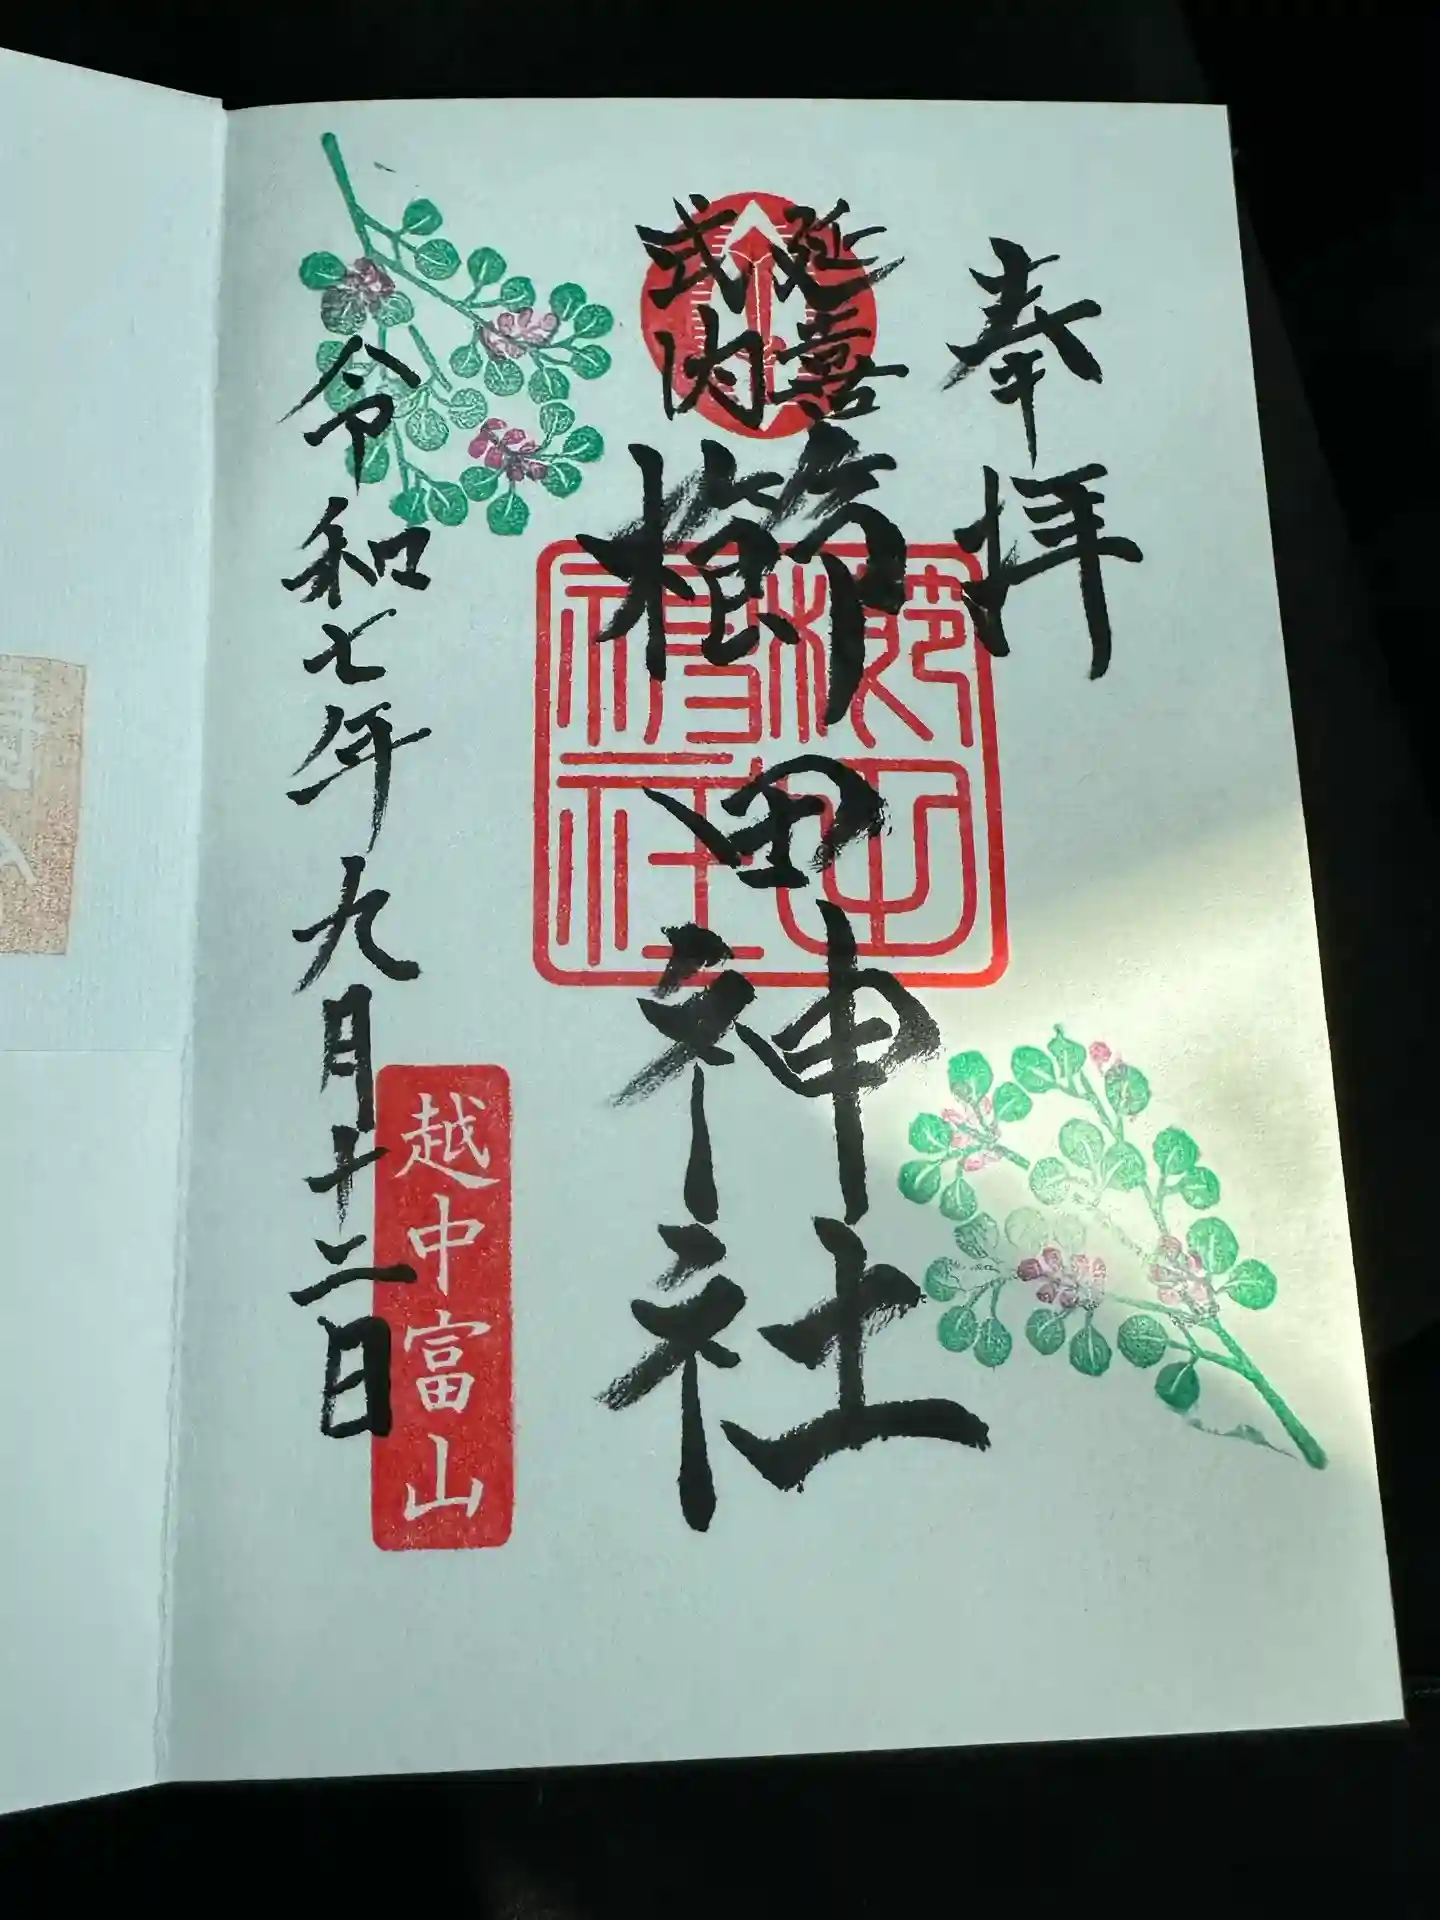 奉拝
延喜
式内
櫛田神社
櫛田
神社
令和七年九月十二日
越中富山